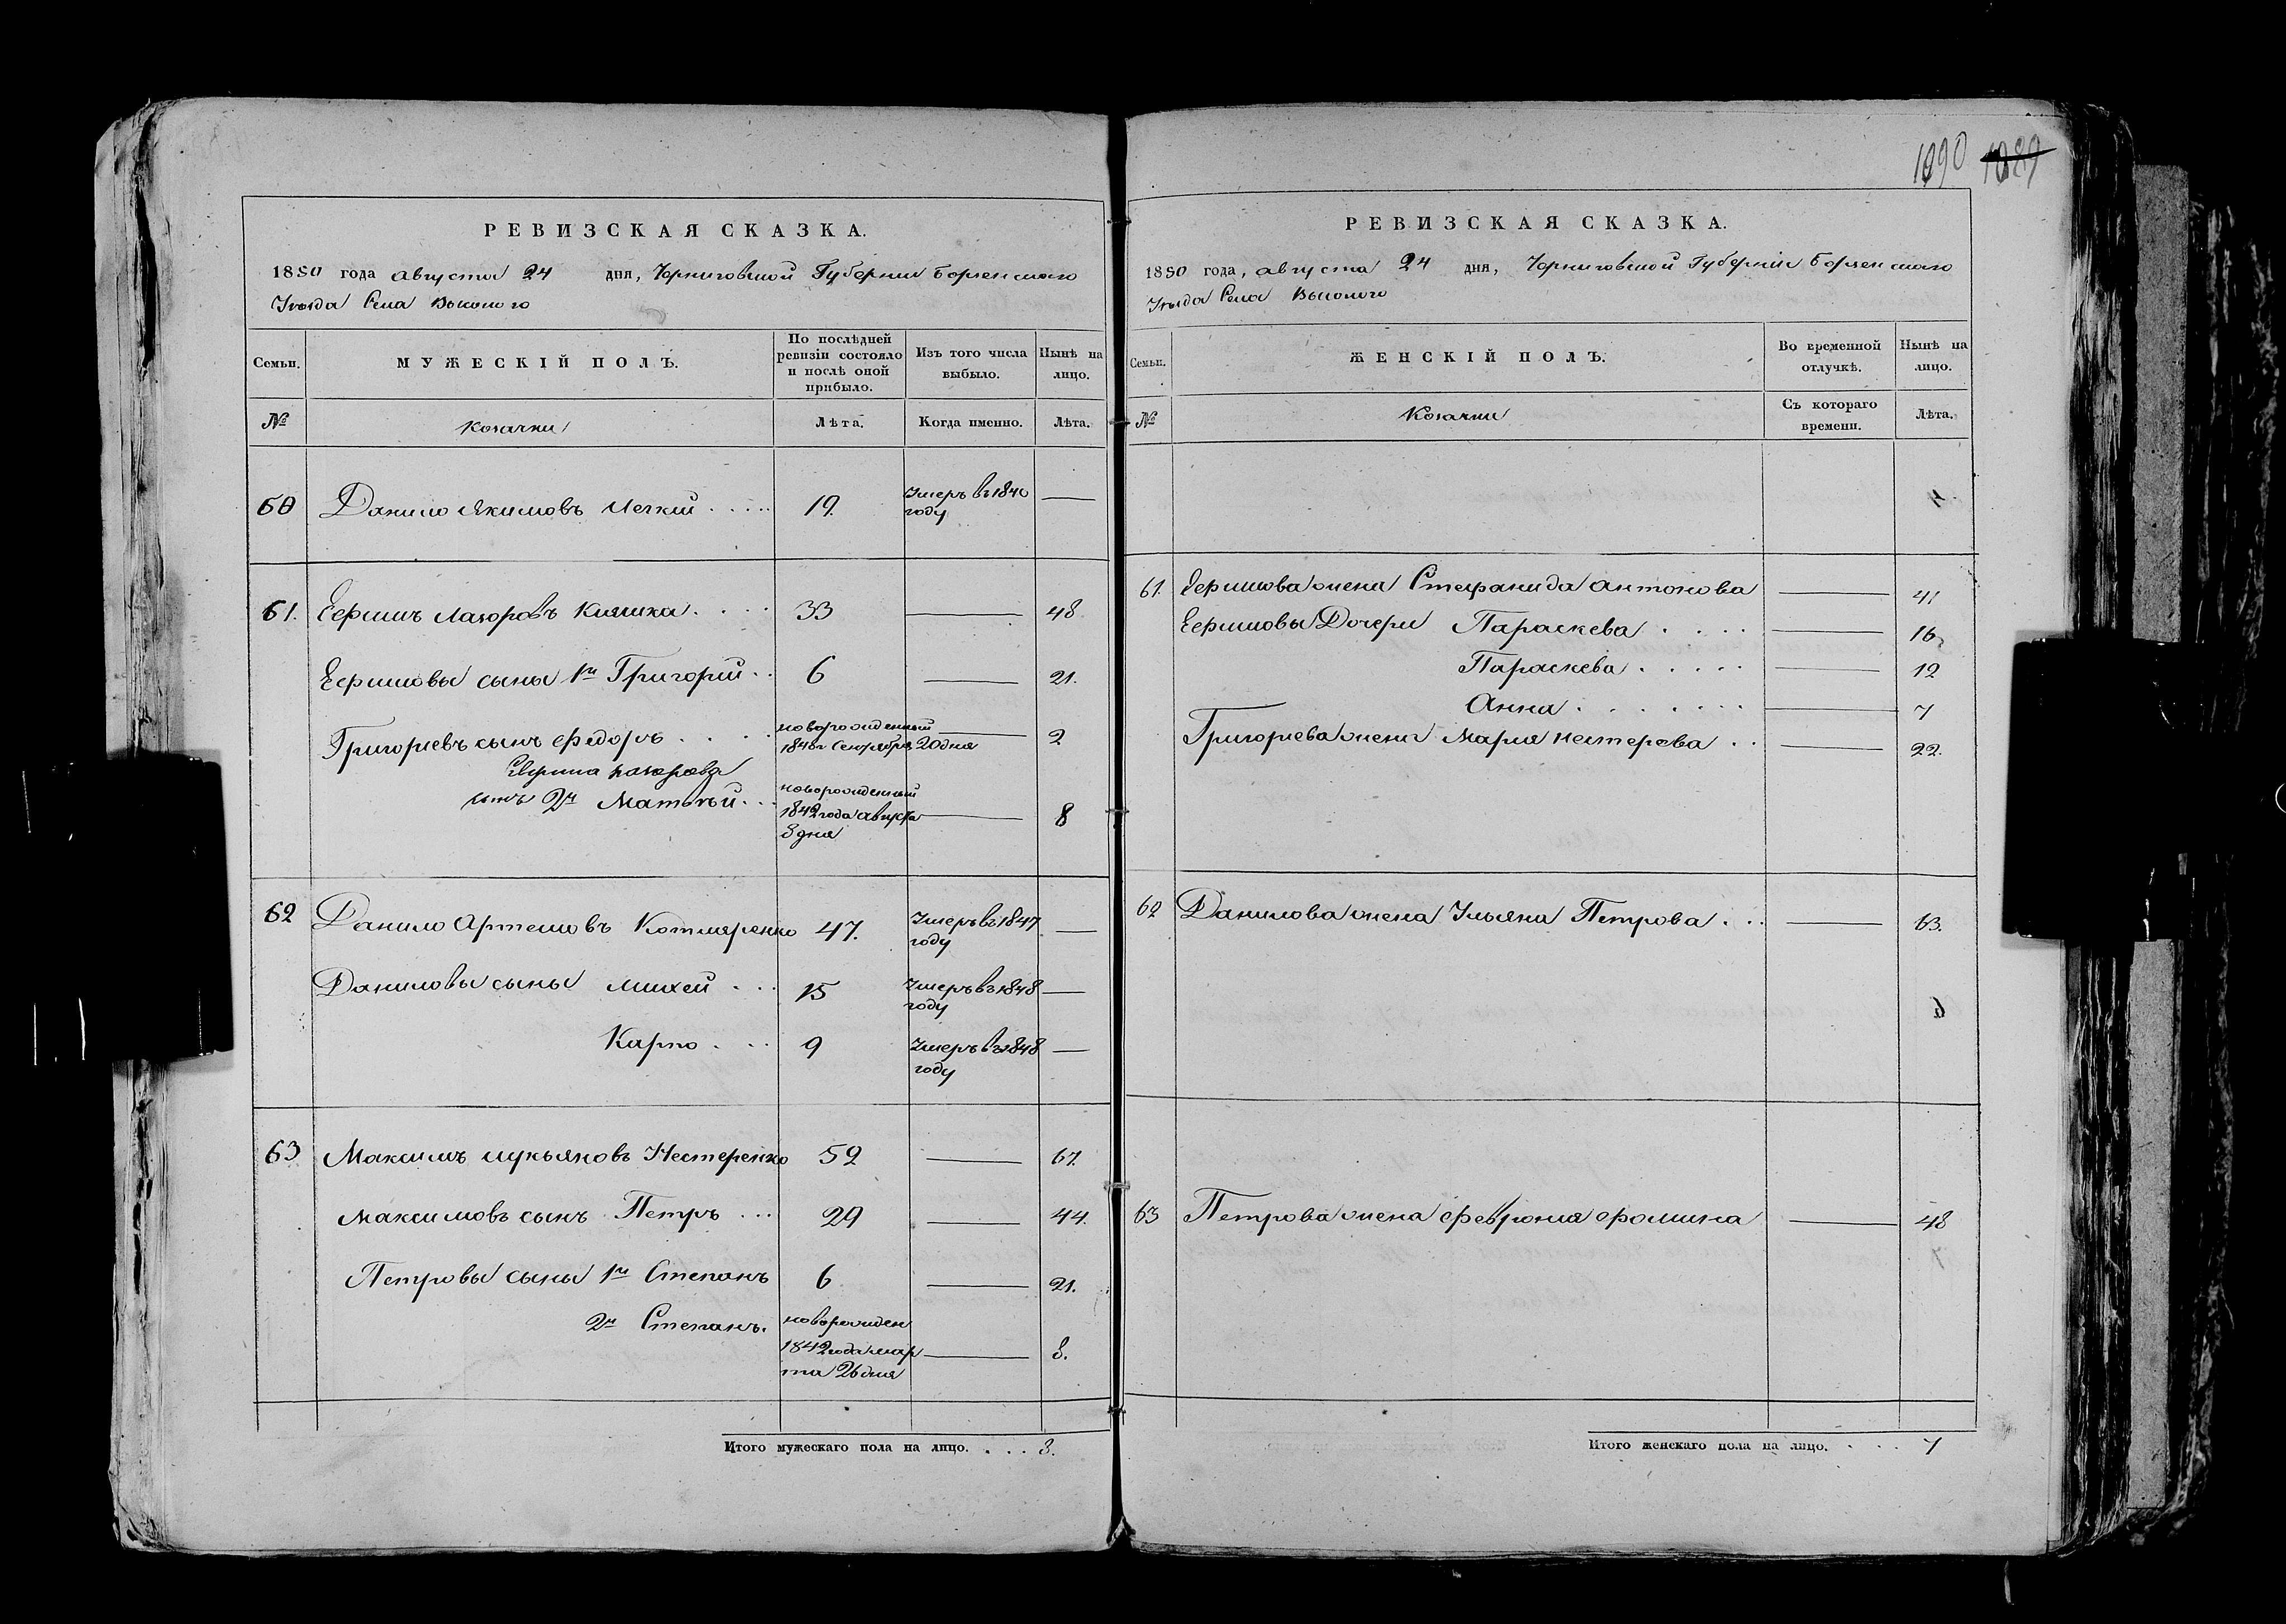 1090 1089
РЕВИЗСКАЯ СКАЗКА.
1850 года августа 24 дня, Черниговской Губернии Борзенскаго
Уезда Села Высокого
Семьи. МУЖЕСКІЙ ПОЛЪ. По послѣдней ревизіи состояло и послѣ оной прибыло. Изъ того числа выбыло. Нынѣ на лицо.
№ Козачки Лѣта. Когда именно. Лѣта.
60 Данило Якимовъ 19. Умеръ въ 1840 году —
61. Лазоровъ Кияшка 33 — 48
сыны 1й Григорій 6 — 21.
Григорьевъ сынъ Федоръ новорожденный 1848 Сентября 20 дня — 2
Лазорова
сынъ 2й Матвѣй новорожденный 1842 года августа 8 дня — 8
62 Данило Артемовъ Котляренко 47. Умеръ въ 1847 году —
Даниловы сыны Михей 15 Умеръ въ 1848 году —
Карпо 9 Умеръ въ 1848 году —
63 Максимъ Лукьяновъ Нестеренко 52 — 67.
Максимовъ сынъ Петръ 29 — 44.
Петровы сыны 1й Степанъ 6 — 21.
2й Степанъ. новорожден 1842 года мар та 26 дня — 8.
Итого мужескаго пола на лицо. . . . 8.
РЕВИЗСКАЯ СКАЗКА.
1850 года, августа 24 дня, Черниговской Губерніи Борзенскаго
Уезда Села Высокого
Семьи. ЖЕНСКІЙ ПОЛЪ. Во временной отлучкѣ. Нынѣ на лицо.
№ Козачки Съ котораго времени. Лѣта.
61. жена Стефанида Антонова — 41
Дочери Параскева — 16
Параскева — 12
Анна — 7
Григорьева жена Мария Нестерова — 22.
62 Данилова жена Ульяна Петрова — 63.
63 Петрова жена Феврония Фомина — 48
Итого женскаго пола на лицо. . . . 7